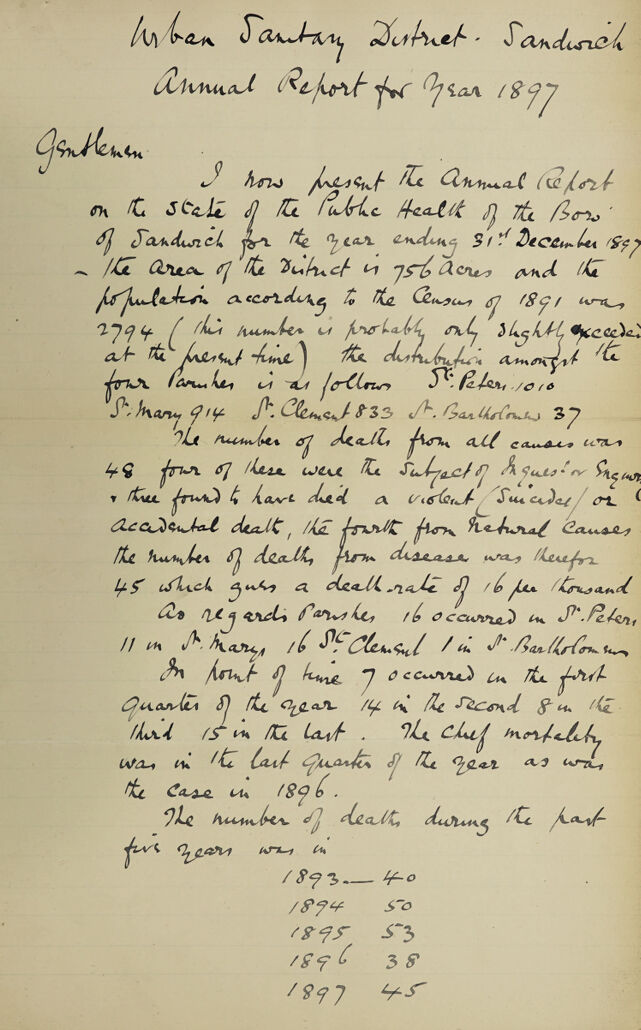 Urban Sanitary District - Sandwich
Annual Report for Year 1897
Gentlemen
I now present the Annual Report
on the State of the Public Health of the Boro'
of Sandwich for the year ending 31st December 1897
- the Area of the District is 756 Acres and the
population according to the Census of 1891 was
2794 (this number is probably only slightly exceeded
at the present time) the distribution amongst the
four Parishes is as follows St. Peters 1010
St. Mary 914 St. Clement 833 St. Bartholomew 37
The number of deaths from all causes was
48 four of these were the subject of Inquest or Enquiry
+ three found to have died a violent (Suicides) or
Accidental death, the fourth from Natural Causes
the number of deaths from disease was therefor
45 which gives a death-rate of 16 per thousand
As regards Parishes 16 occurred in St. Peters
11 in St. Marys 16 St. Clement 1 in St. Bartholomews
In point of time 7 occurred in the first
quarter of the year 14 in the second 8 in the
third 15 in the last. The Chief mortality
was in the last quarter of the year as was
the case in 1896.
The number of deaths during the past
five years was in
1893 — 40
1894 50
1895 53
1896 38
1897 45